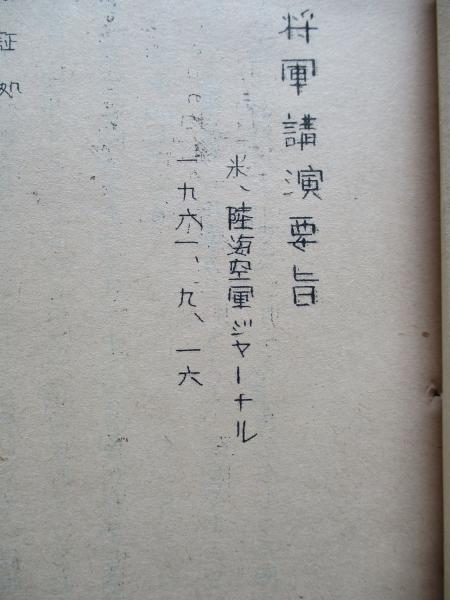 将軍講演要旨
米、陸海空軍ジャーナル
一九六一、九、一六
証処